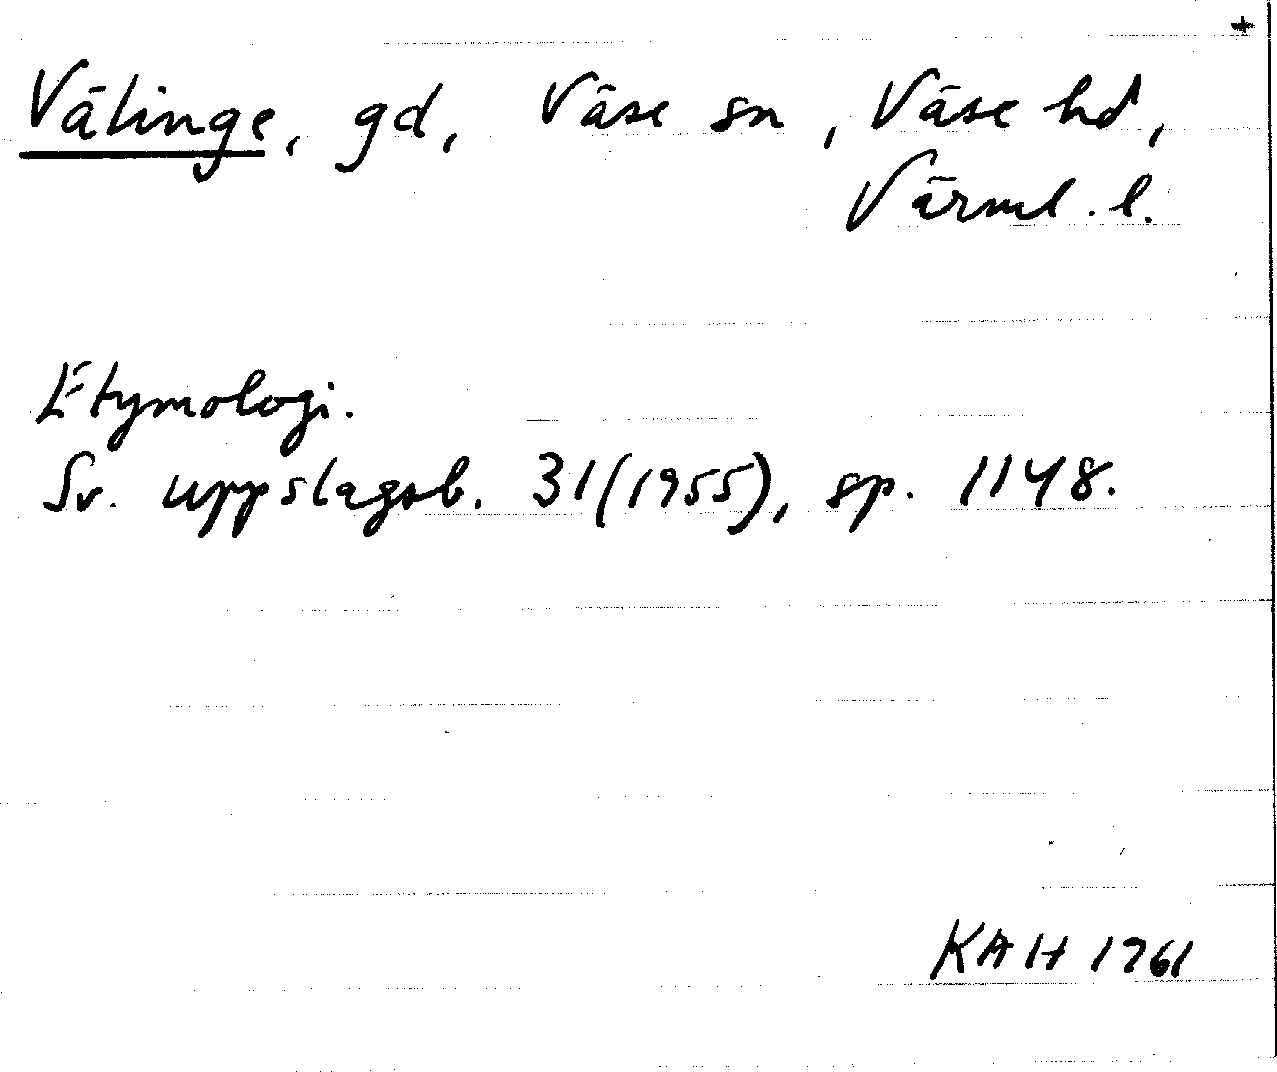 +
Välinge, gd, Väse sn, Väse hd,
Värml. l.
Etymologi.
Sv. uppslagsb. 31(1955), sp. 1148.
KAH 1961